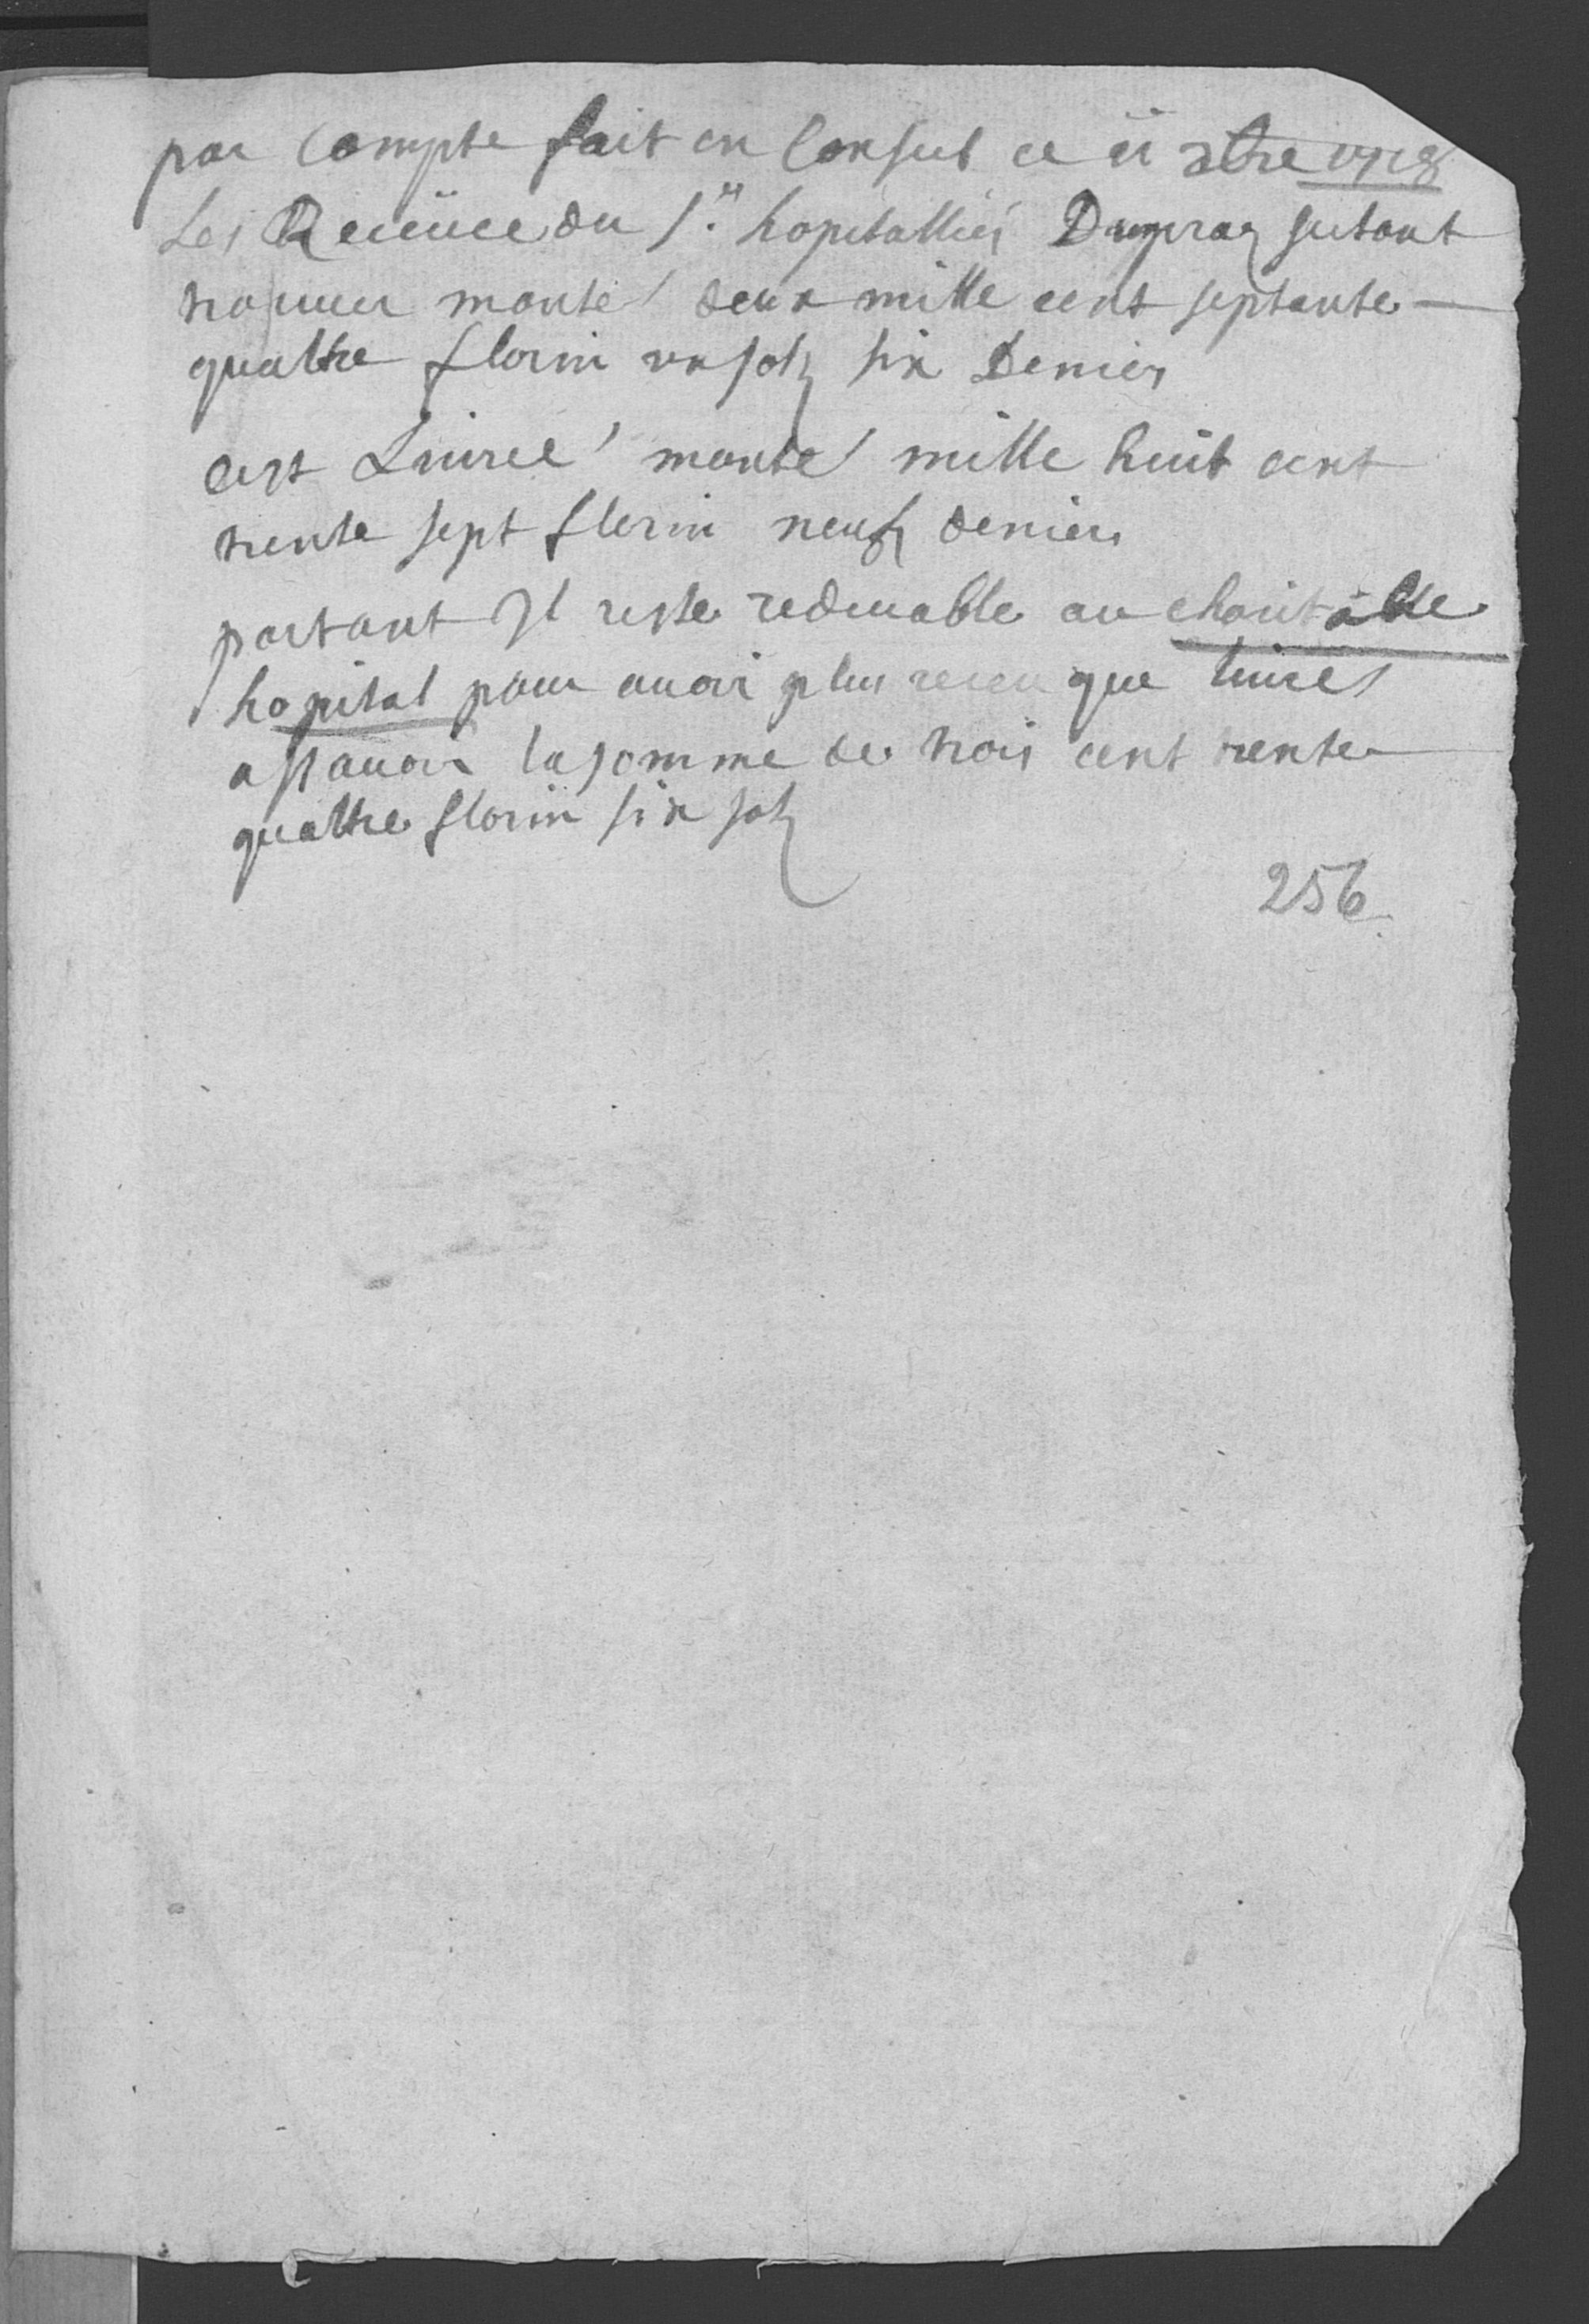 par Compte fait en Conseil ce 11 xbre 1718
Les Receüee du Sr. hopitallier Dupraz se sont
trouuer monté deux mille cent septante
quattre florin un solz six Denier
est Liuree monte mille huit cent
trente sept florin neufz deniers
portant Il reste redeuable au charitable
hopital pour auoir plus receu que liures
assauoir la somme de trois cent trente
quattre florin six solz
256